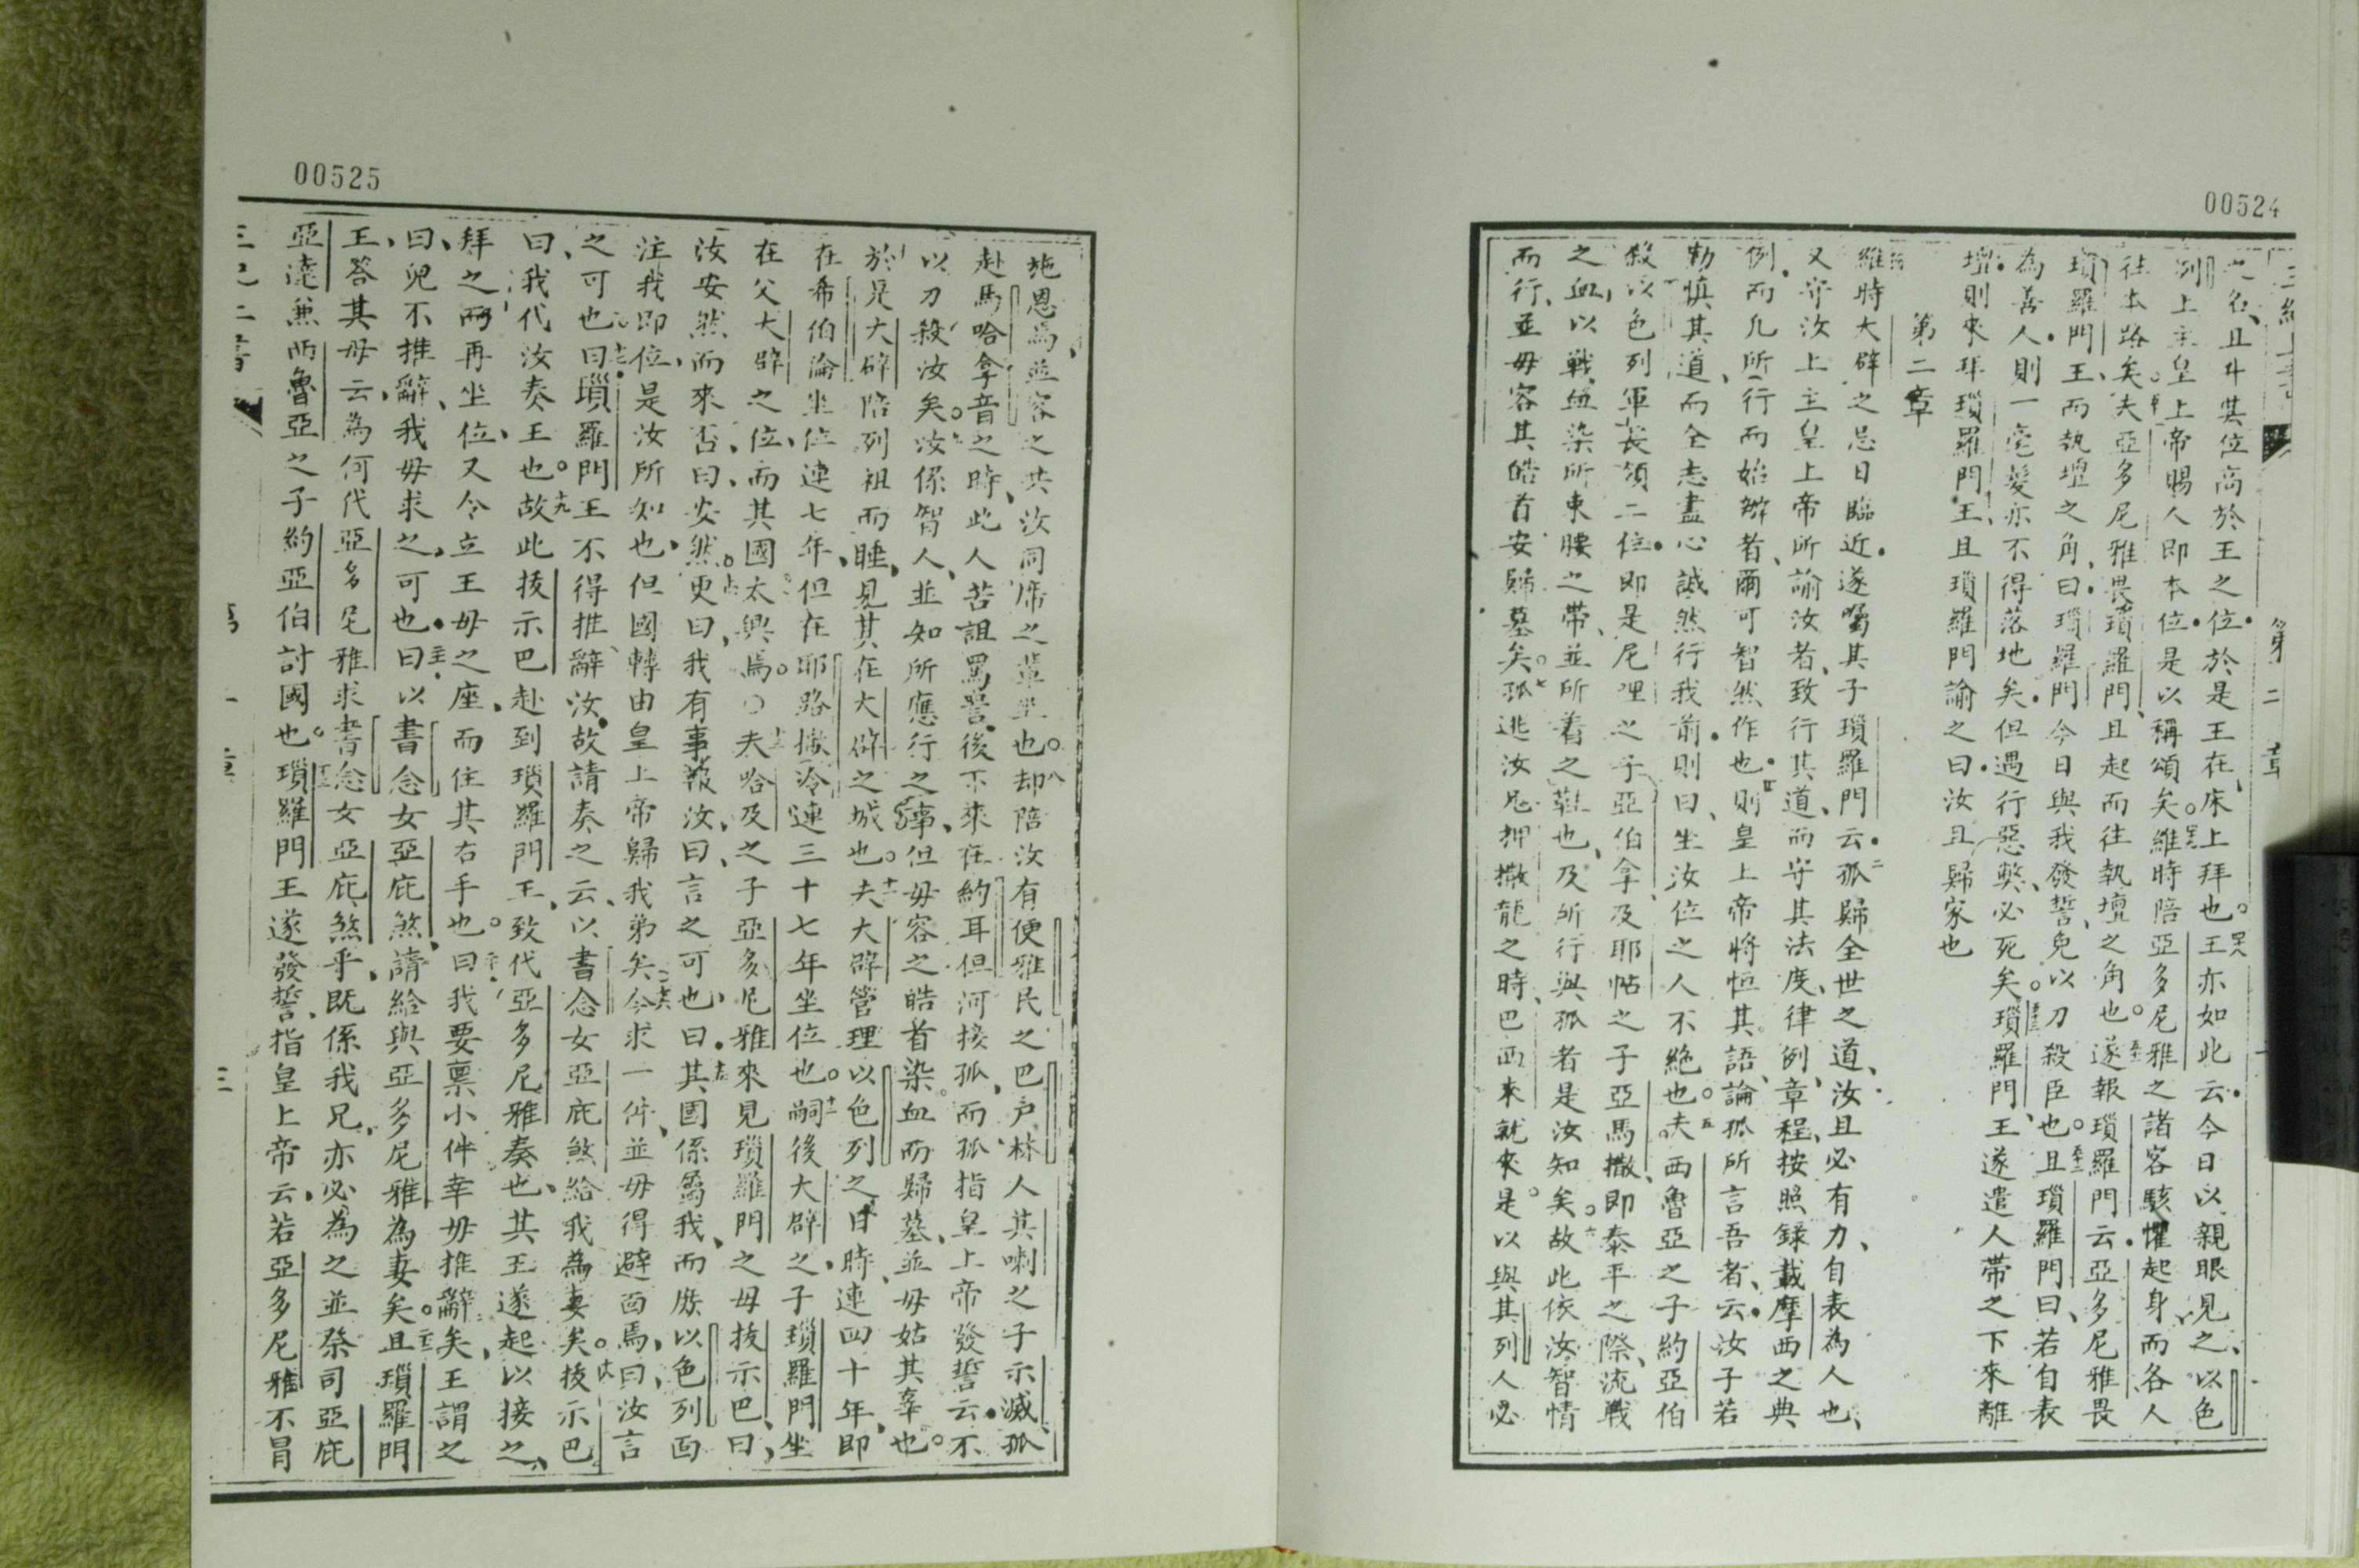 00524
第二章
之名、且升其位高於王之位、於是王在床上拜也。四八王亦如此云、今日以親眼見之、以色
列上主皇上帝賜人即本位、是以稱頌矣。四九維時陪亞多尼雅之諸客駭懼起身、而各人
往本路矣。五十夫亞多尼雅畏瑣羅門、且起而往執壇之角也。五一遂報瑣羅門云、亞多尼雅畏
瑣羅門王、而執壇之角、曰、瑣羅門今日與我發誓、免以刀殺臣也。五二且瑣羅門曰、若自表
為善人、則一毫髮亦不得落地矣、但遇行惡獘、必死矣。五三瑣羅門王遂遣人帶之下來離
壇、則來拜瑣羅門王、且瑣羅門諭之曰、汝且歸家也
第二章
維時大辟之忌日臨近、遂囑其子瑣羅門云、二孤歸全世之道、汝且必有力、自表為人也、
又守汝上主皇上帝所諭汝者、致行其道、而守其法度、律例、章程、按照錄載摩西之典
例、而凡所行而始辦者、爾可智然作也。四則皇上帝將恒其語、論孤所言吾者、云、汝子若
勅慎其道、而全志盡心誠然行我前、則曰、坐汝位之人不絕也。五夫西魯亞之子約亞伯
殺以色列軍長領二位、即是尼哩之子亞伯拿、及耶帖之子亞馬撒、即泰平之際、流戰
之血、以戰血染所束腰之帶、並所着之鞋也、及所行與孤者、是汝知矣。六故此依汝智情
而行、並毋容其皓首安歸墓矣。七孤逃汝兄押撒龍之時、巴西來就來。是以與其列人必
00525
施恩焉、並容之共汝同席之輩坐也。八却陪汝有便雅民之巴戶林人其喇之子示滅、孤
赴馬哈拿音之時、此人苦詛罵詈、後下來在約耳但河接孤、而孤指皇上帝發誓云、不
以刀殺汝矣。九汝係智人、並知所應行之事、但毋容之皓首染血而歸墓、並毋姑其辜也。
於是大辟陪列祖而睡、見其在大辟之城也。十一夫大辟管理以色列之日時、連四十年、即
在希伯論坐位連七年、但在耶路撒冷連三十七年坐位也。十二嗣後大辟之子瑣羅門坐
在父大辟之位、而其國太興焉。〇十三夫哈及之子亞多尼雅來見瑣羅門之母拔示巴、曰、
汝安然而來否、曰、安然。十四更曰、我有事報汝、曰、言之可也、十五曰、其國係屬我、而厥以色列面
注我即位、是汝所知也、但國轉由皇上帝歸我弟矣。十六今求一件、並毋得避面焉、曰、汝言
之可也。十七曰、瑣羅門王不得推辭汝、故請奏之云、以書念女亞庇煞給我為妻矣。十八拔示巴
曰、我代汝奏王也。十九故此拔示巴赴到瑣羅門王、致代亞多尼雅奏也、其王遂起以接之、
拜之、而再坐位、又令立王母之座、而住其右手也。二十曰、我要禀小件、幸毋推辭矣、王謂之
曰、兒不推辭、我母求之、可也。二一曰、以書念女亞庇煞、請給與亞多尼雅為妻矣。二二且瑣羅門
王、答其母云、為何代亞多尼雅求書念女亞庇煞乎、既係我兄、亦必為之並祭司亞庇
亞達兼西魯亞之子約亞伯討國也。二三瑣羅門王遂發誓、指皇上帝云、若亞多尼雅不冒